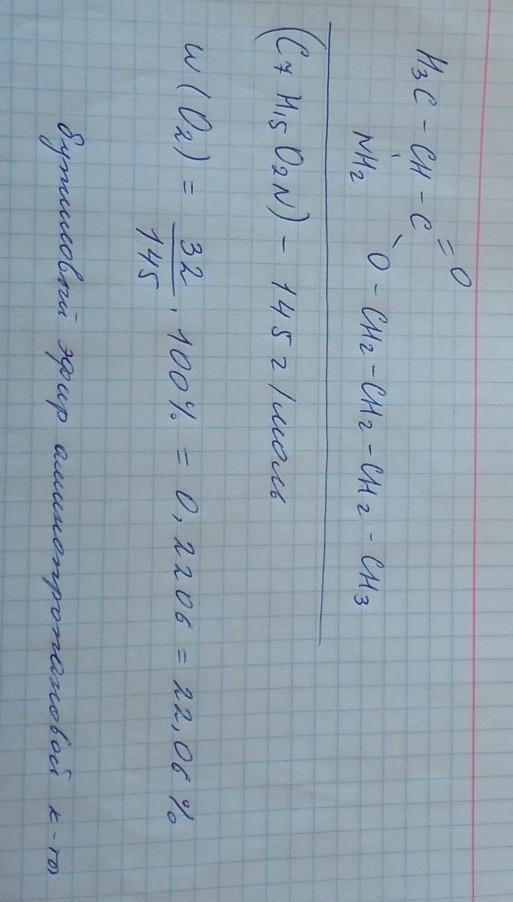 H3C - CH - C = O
NH2 O - CH2 - CH2 - CH2 - CH3
(C7 H15 O2 N) - 145 г/моль
W(O2) = 32/145 · 100% = 0,2206 = 22,06%
бутиловый эфир аминопропановой к-ты